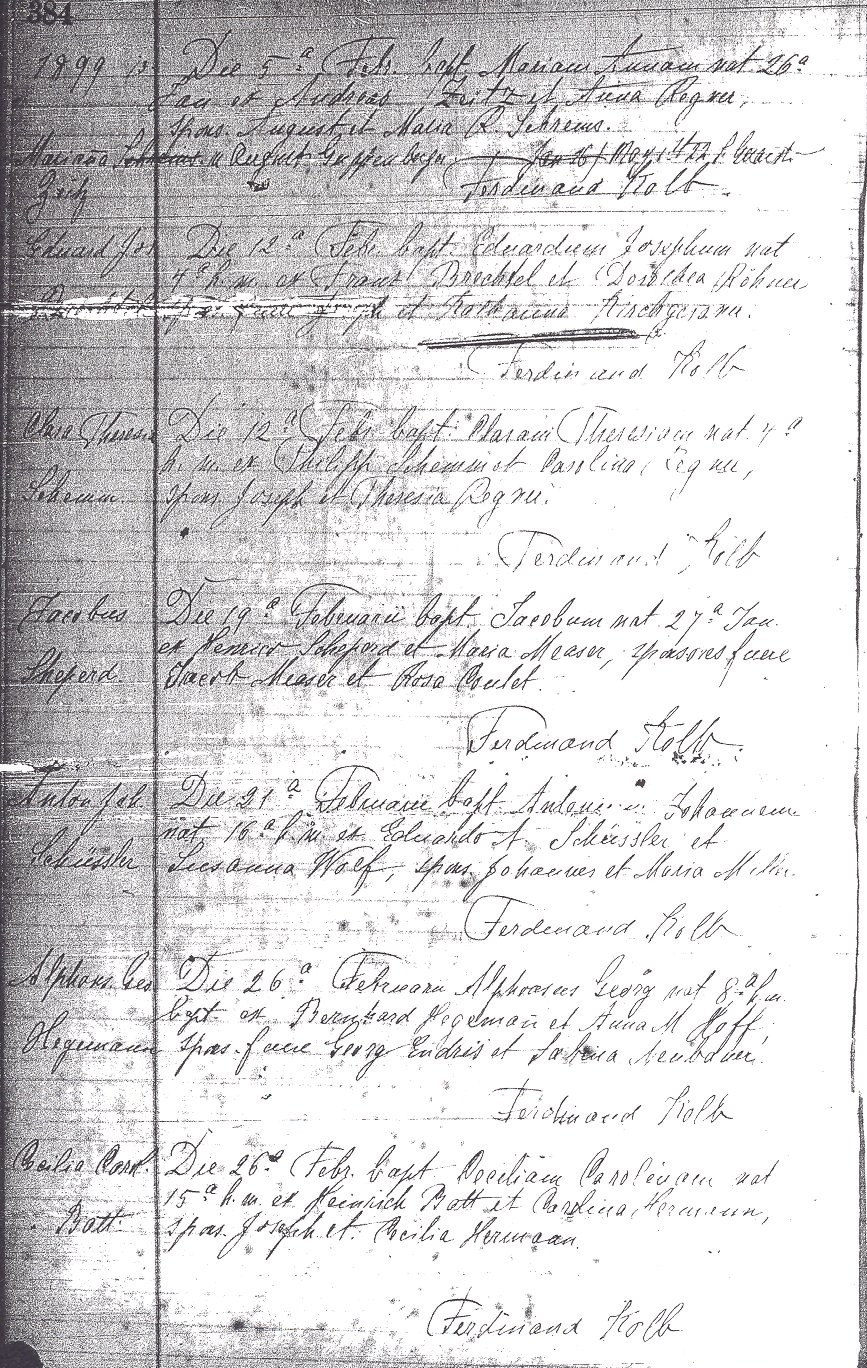 384
1899 Die 5ª Febr. bapt. Mariam Annam nat 26ª
Jan ex Andreas Zeitz et Anna Regner,
spons. August et Maria R. Schrems.
Mariana Schrems. August Guppenberger Jan 16 May 1422
Zeitz Ferdinand Kolb
Eduard Jos Die 12ª Febr. bapt. Eduardum Josephum nat
4ª h.m. ex Franz Brechtel et Dorothea Röhner
et Kirchgessner.
Ferdinand Kolb
Clara Theresia Die 12ª Febr. bapt. Claram Theresiam nat. 4ª
h.m. ex Philipp Schemm et Carolina Regner,
Schemm. spons. Joseph et Theresia Regner.
Ferdinand Kolb
Jacobus Die 19ª Februarii bapt. Jacobum nat 27ª Jan.
ex Henrico Scheperd et Maria Measer, sponsores fuere
Sheperd Jacob Measer et Rosa Coulet.
Ferdinand Kolb.
Anton Joh. Die 21ª Februarii bapt. Antonium Johannem
nat 16ª h.m. ex Eduardo A. Schüssler et
Schüssler Susanna Wolf, spons. Johannes et Maria
Ferdinand Kolb
Alphons. Geo Die 26ª Februarii Alphonsus Georg nat 8ª h.m.
bapt ex Bernhard Hegemañ et Anna M Hoff,
Hegemann spons. fuere Georg Endris et Sabina Neubauer.
Ferdinand Kolb
Cecilia Carol. Die 26ª Febr. bapt Ceciliam Carolinam nat
15ª h.m. ex Heinrich Bott et Carolina Hermann,
Bott spons. Joseph et Cecilia Hermann.
Ferdinand Kolb